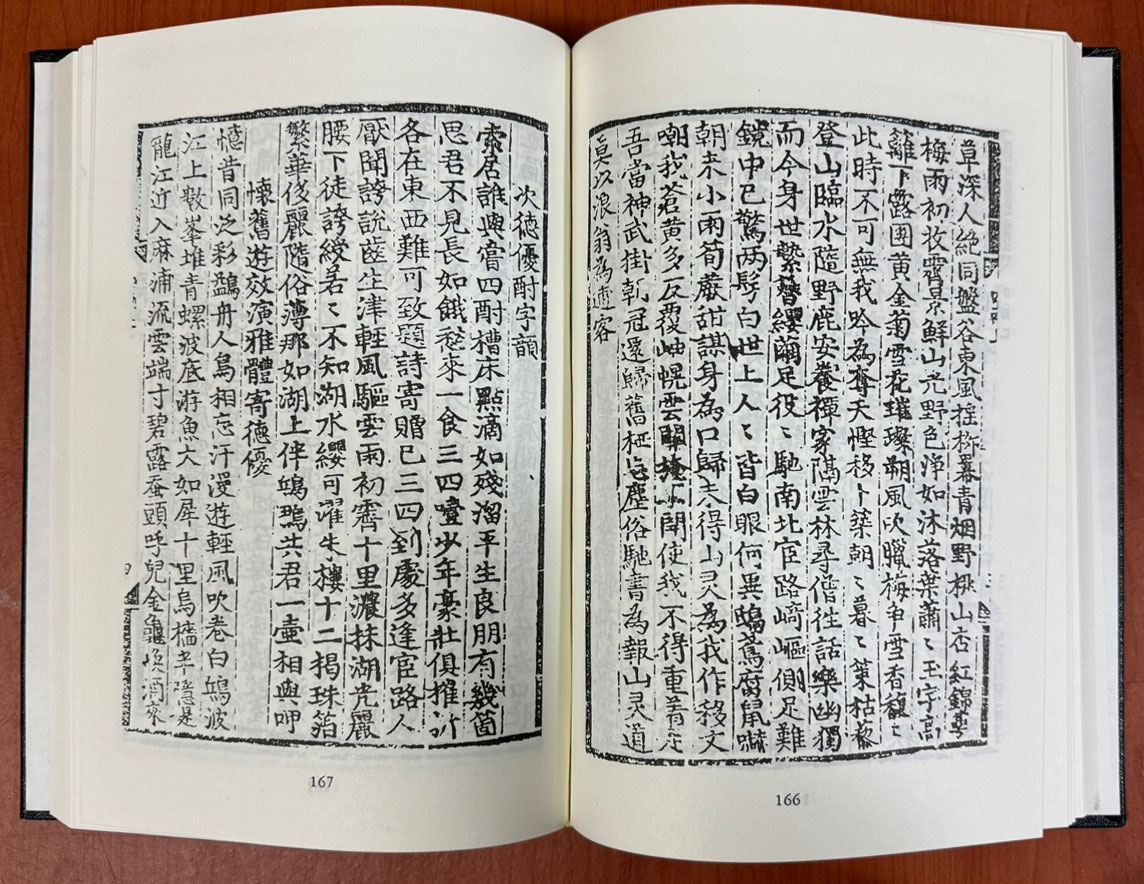 草深人絶同盤谷東風搖柳羃青烟野桃山杏紅錦亭
梅雨初收霽景鮮山光野色淨如沐落葉蕭〻玉宇高
籬下露團黃金菊雪花璀璨朔風吹臘梅爭雪香馥〻
此時不可無我吟爲奪天慳移卜築朝〻暮〻策枯藜
登山臨水隨野鹿安養禪家隔雲林尋僧往話樂幽獨
而今身世縶簪纓繭足役〻馳南北宦路崎嶇側足難
鏡中已驚兩鬂白世上人〻皆白眼何異鴟鳶腐鼠嚇
朝來小雨荀蕨甜謀身爲口歸未得山灵爲我作移文
嘲我蒼黃多反覆岫幌雲關掩不開使我不得重着
吾當神武掛朝冠還歸舊栖忘塵俗馳書爲報山灵道
莫以浪翁爲逋客
166
次德優酎字韻
索居誰與嘗四酎槽床點滴如殘溜平生良朋有幾箇
思君不見長如餓愁來一食三四嚏少年豪壯俱摧
各在東西難可致題詩寄贈已三四到處多逢宦路人
厭聞誇說齒生津輕風驅雲雨初霽十里濃抹湖光麗
腰下徒誇綬若〻不知湖水纓可濯朱樓十二揭珠箔
繁華侈麗隨俗薄那如湖上伴鴟鴞共君一壺相與呷
懷舊遊效演雅體寄德優
憶昔同泛彩鷁舟人鳥相忘汗漫遊輕風吹卷白鷗波
江上數峯堆靑螺波底游魚大如犀十里烏檣半隱是
龍江近入麻浦流雲端寸碧露蠶頭呼兒金龜換酒來
167